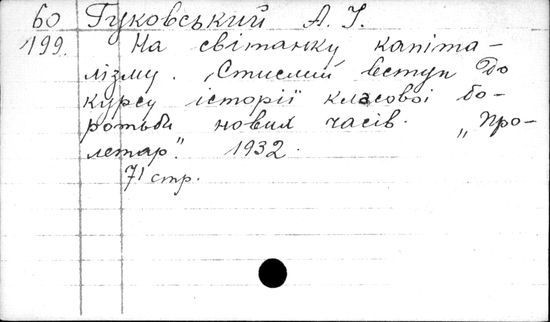 60 Гуковський А. І.
199. На світанку капіта-
лізму. Стислий вступ до
курсу історії класової бо-
ротьби нових часів. „Про-
летар". 1932.
71 стр.